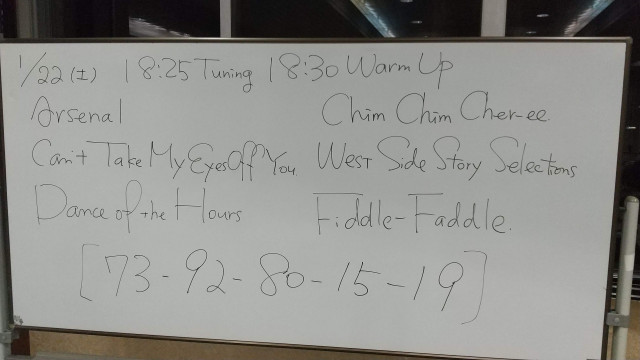 1/22(土) 18:25 Tuning 18:30 Warm Up
Arsenal Chim Chim Cher-ee
Can't Take My Eyes Off You West Side Story Selections
Dance of the Hours Fiddle-Faddle.
[73-92-80-15-19]